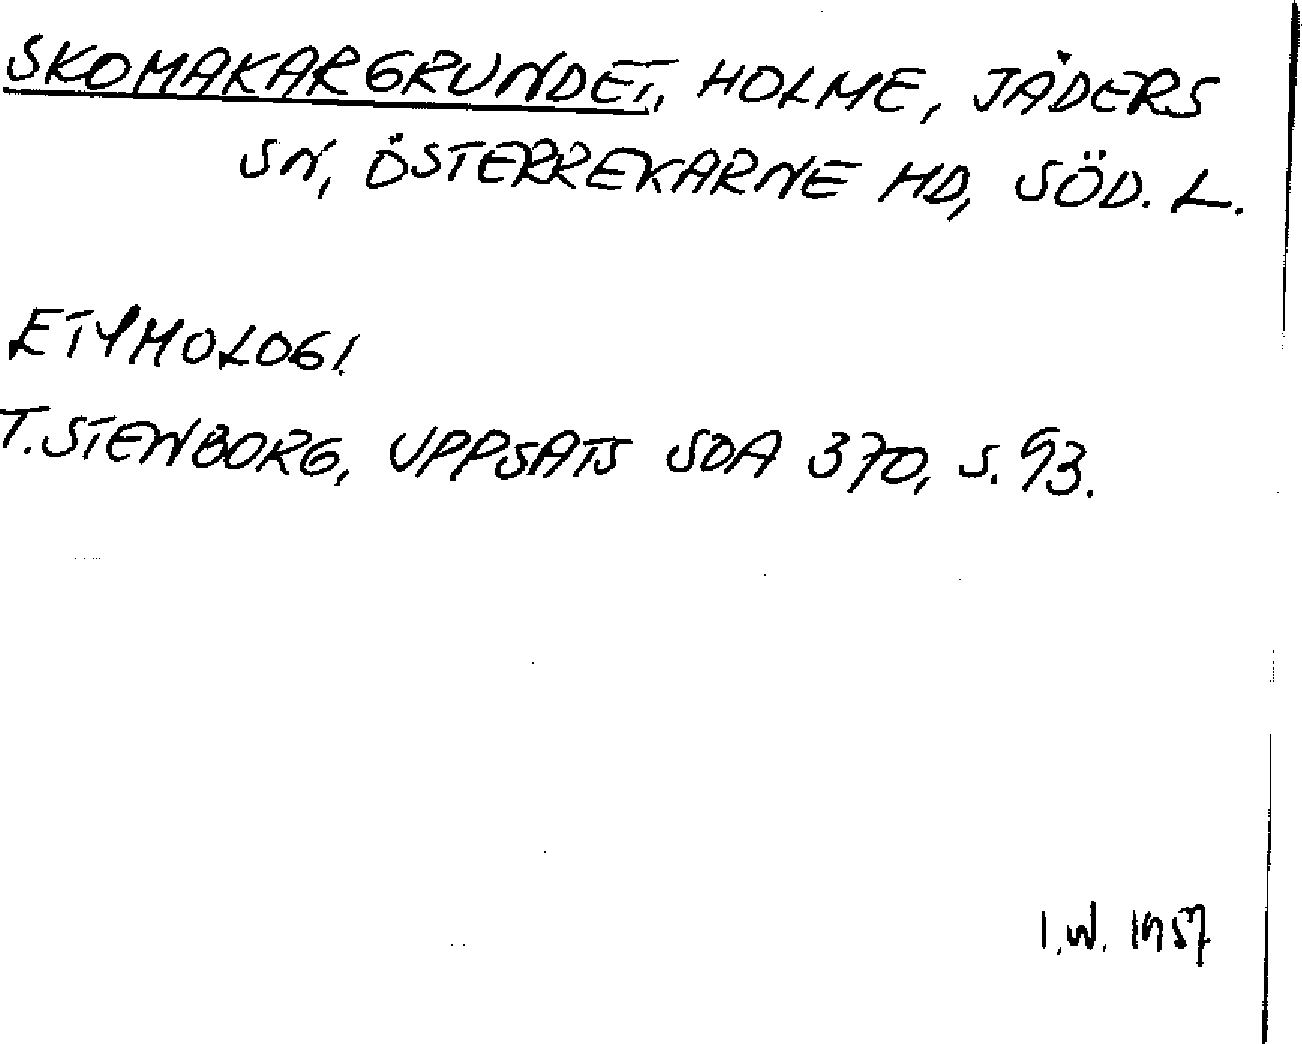 SKOMAKARGRUNDET, HOLME, JÄDERS
SN, ÖSTERREKARNE HD, SÖD. L.
ETYMOLOGI
T. STENBORG, UPPSATS SOA 370, S. 93.
I.W. 1957